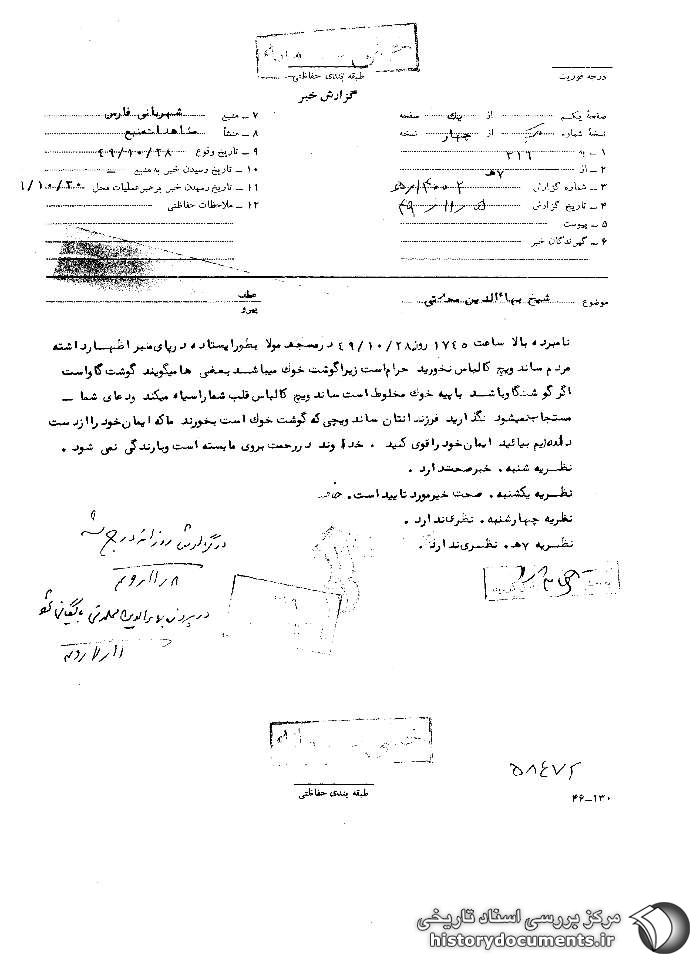 درجه فوریت
طبقه بندی حفاظتی
گزارش خبر
صفحهٔ یکم از یک صفحه
نسخهٔ شماره از چهار نسخه
۱ ـ به ۳۱۶
۲ ـ از ۷ه
۳ ـ شماره گزارش
۴ ـ تاریخ گزارش
۵ ـ پیوست
۶ ـ گیرندگان خبر
۷ ـ منبع شهربانی فارس
۸ ـ منشأ مشاهدات منبع
۹ ـ تاریخ وقوع ۴۹/۱۰/۲۸
۱۰ ـ تاریخ رسیدن خبر به منبع ـ
۱۱ ـ تاریخ رسیدن خبر برهبر عملیات محل
۱۲ ـ ملاحظات حفاظتی
موضوع شیخ بهاءالدین محلاتی
عطف
پیرو
نامبرده بالا ساعت ۱۷۴۵ روز ۴۹/۱۰/۲۸ در مسجد مولا بطور ایستاده در پای منبر اظهار داشته
مردم ساندویچ کالباس نخورید حرام است زیرا گوشت خوک میباشد بعضی ها میگویند گوشت گاو است
اگر گوشت گاو باشد با پیه خوک مخلوط است ساندویچ کالباس قلب شما را سیاه میکند و دعای شما ـ
مستجاب نمیشود نگذارید فرزندانتان ساندویچی که گوشت خوک است بخورند ما که ایمان خود را از دست
داده‌ایم بیائید ایمان خود را قوی کنید . خداوند در رحمت بروی ما بسته است و بارندگی نمی شود .
نظریه شنبه . خبر صحت دارد .
نظریه یکشنبه . صحت خبر مورد تایید است .
نظریه چهارشنبه . نظری ندارد .
نظریه ۷ه . نظری ندارد .
در گزارش روزانه درج شد
در پرونده بهاءالدین محلاتی بایگانی شود
طبقه بندی حفاظتی
۵۸۴۷۲
۴۶ـ۱۳۰
مرکز بررسی اسناد تاریخی
historydocuments.ir